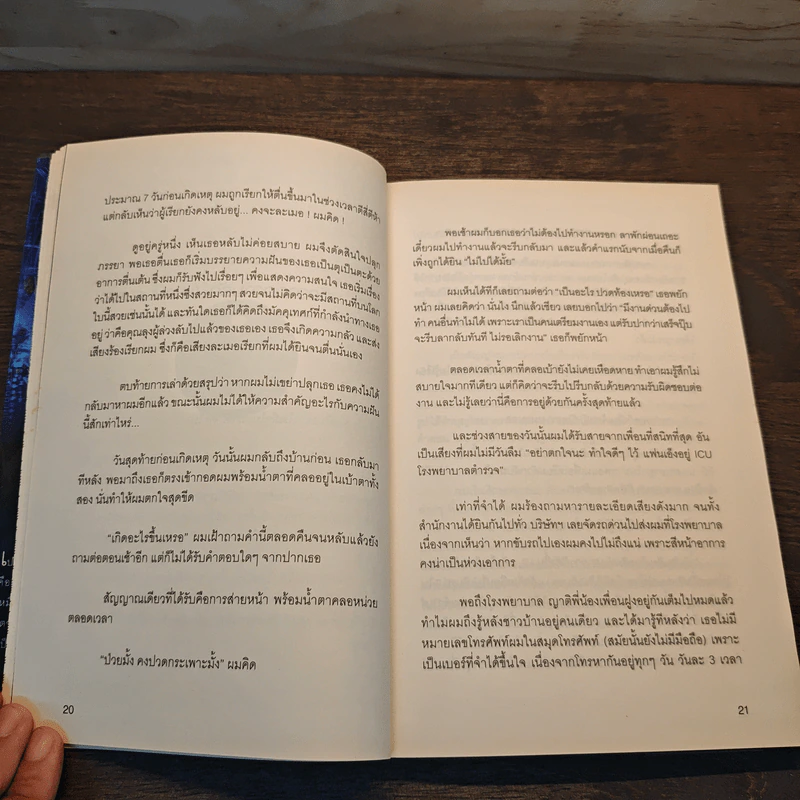 ประมาณ 7 วันก่อนเกิดเหตุ ผมถูกเรียกให้ตื่นขึ้นมาในช่วงเวลาตีสี่ตีห้า
แต่กลับเห็นว่าผู้เรียกยังคงหลับอยู่... คงจะละเมอ ! ผมคิด !
ดูอยู่ครู่หนึ่ง เห็นเธอหลับไม่ค่อยสบาย ผมจึงตัดสินใจปลุก
ภรรยา พอเธอตื่นเธอก็เริ่มบรรยายความฝันของเธอเป็นตุเป็นตะด้วย
อาการตื่นเต้น ซึ่งผมก็รับฟังไปเรื่อยๆ เพื่อแสดงความสนใจ เธอเริ่มเรื่อง
ว่าได้ไปในสถานที่หนึ่งซึ่งสวยมากๆ สวยจนไม่คิดว่าจะมีสถานที่บนโลก
ใบนี้สวยเช่นนั้นได้ และทันใดเธอก็ได้คิดถึงมัคคุเทศก์ที่กำลังนำทางเธอ
อยู่ ว่าคือคุณลุงผู้ล่วงลับไปแล้วของเธอเอง เธอจึงเกิดความกลัว และส่ง
เสียงร้องเรียกผม ซึ่งก็คือเสียงละเมอเรียกที่ผมได้ยินจนตื่นนั่นเอง
ตบท้ายการเล่าด้วยสรุปว่า หากผมไม่เขย่าปลุกเธอ เธอคงไม่ได้
กลับมาหาผมอีกแล้ว ขณะนั้นผมไม่ได้ให้ความสำคัญอะไรกับความฝัน
นี้สักเท่าไหร่...
วันสุดท้ายก่อนเกิดเหตุ วันนั้นผมกลับถึงบ้านก่อน เธอกลับมา
ทีหลัง พอมาถึงเธอก็ตรงเข้ากอดผมพร้อมน้ำตาที่คลออยู่ในเบ้าตาทั้ง
สอง นั่นทำให้ผมตกใจสุดขีด
“เกิดอะไรขึ้นเหรอ” ผมเฝ้าถามคำนี้ตลอดคืนจนหลับแล้วยัง
ถามต่อตอนเช้าอีก แต่ก็ไม่ได้รับคำตอบใดๆ จากปากเธอ
สัญญาณเดียวที่ได้รับคือการส่ายหน้า พร้อมน้ำตาคลอหน่วย
ตลอดเวลา
“ป่วยมั้ง คงปวดกระเพาะมั้ง” ผมคิด
20
พอเช้าผมก็บอกเธอว่าไม่ต้องไปทำงานหรอก ลาพักผ่อนเถอะ
เดี๋ยวผมไปทำงานแล้วจะรีบกลับมา และแล้วคำแรกนับจากเมื่อคืนก็
เพิ่งถูกได้ยิน “ไม่ไปได้มั้ย”
ผมเห็นได้ทีก็เลยถามต่อว่า “เป็นอะไร ปวดท้องเหรอ” เธอพยัก
หน้า ผมเลยคิดว่า นั่นไง นึกแล้วเชียว เลยบอกไปว่า “มีงานด่วนต้องไป
ทำ คนอื่นทำไม่ได้ เพราะเราเป็นคนเตรียมงานเอง แต่รับปากว่าเสร็จปุ๊บ
จะรีบลากลับทันที ไม่รอเลิกงาน” เธอก็พยักหน้า
ตลอดเวลาน้ำตาที่คลอเบ้ายังไม่เคยเหือดหาย ทำเอาผมรู้สึกไม่
สบายใจมากทีเดียว แต่ก็คิดว่าจะรีบไปรีบกลับด้วยความรับผิดชอบต่อ
งาน และไม่รู้เลยว่านี่คือการอยู่ด้วยกันครั้งสุดท้ายแล้ว
และช่วงสายของวันนั้นผมได้รับสายจากเพื่อนที่สนิทที่สุด อัน
เป็นเสียงที่ผมไม่มีวันลืม “อย่าตกใจนะ ทำใจดีๆ ไว้ แฟนเอ็งอยู่ ICU
โรงพยาบาลตำรวจ”
เท่าที่จำได้ ผมร้องถามหารายละเอียดเสียงดังมาก จนทั้ง
สำนักงานได้ยินกันไปทั่ว บริษัทฯ เลยจัดรถด่วนไปส่งผมที่โรงพยาบาล
เนื่องจากเห็นว่า หากขับรถไปเองผมคงไปไม่ถึงแน่ เพราะสีหน้าอาการ
คงน่าเป็นห่วงเอาการ
พอถึงโรงพยาบาล ญาติพี่น้องเพื่อนฝูงอยู่กันเต็มไปหมดแล้ว
ทำไมผมถึงรู้หลังชาวบ้านอยู่คนเดียว และได้มารู้ทีหลังว่า เธอไม่มี
หมายเลขโทรศัพท์ผมในสมุดโทรศัพท์ (สมัยนั้นยังไม่มีมือถือ) เพราะ
เป็นเบอร์ที่จำได้ขึ้นใจ เนื่องจากโทรหากันอยู่ทุกๆ วัน วันละ 3 เวลา
21